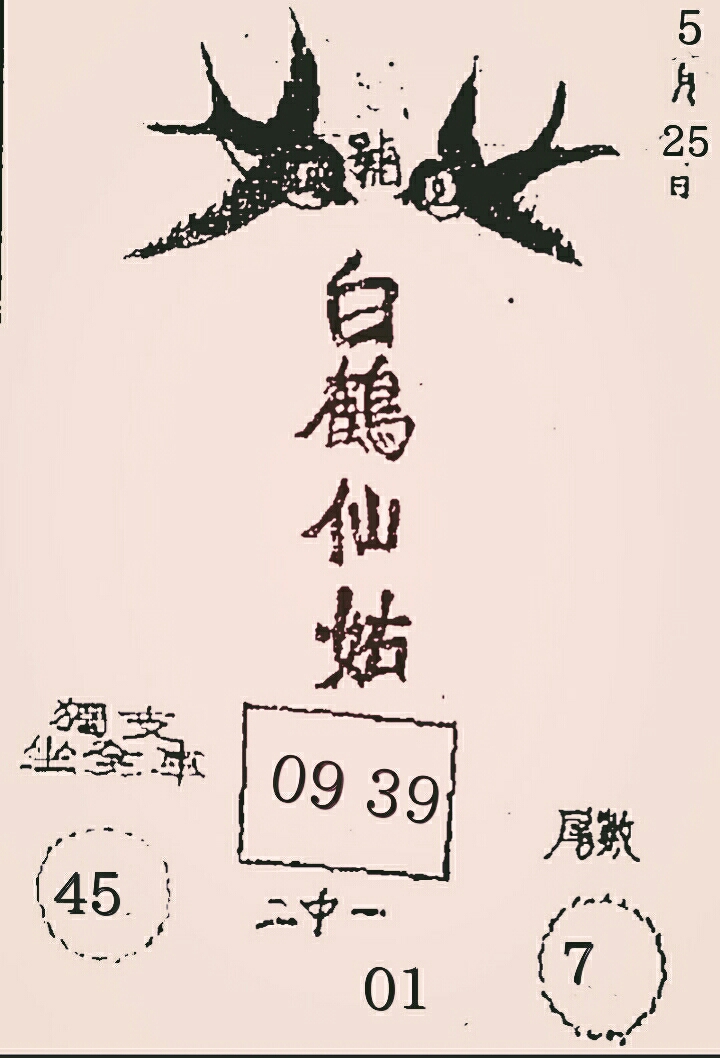 5
月
25
日
號
白
鶴
仙
姑
獨支
坐全車
09 39
二中一
01
45
尾數
7